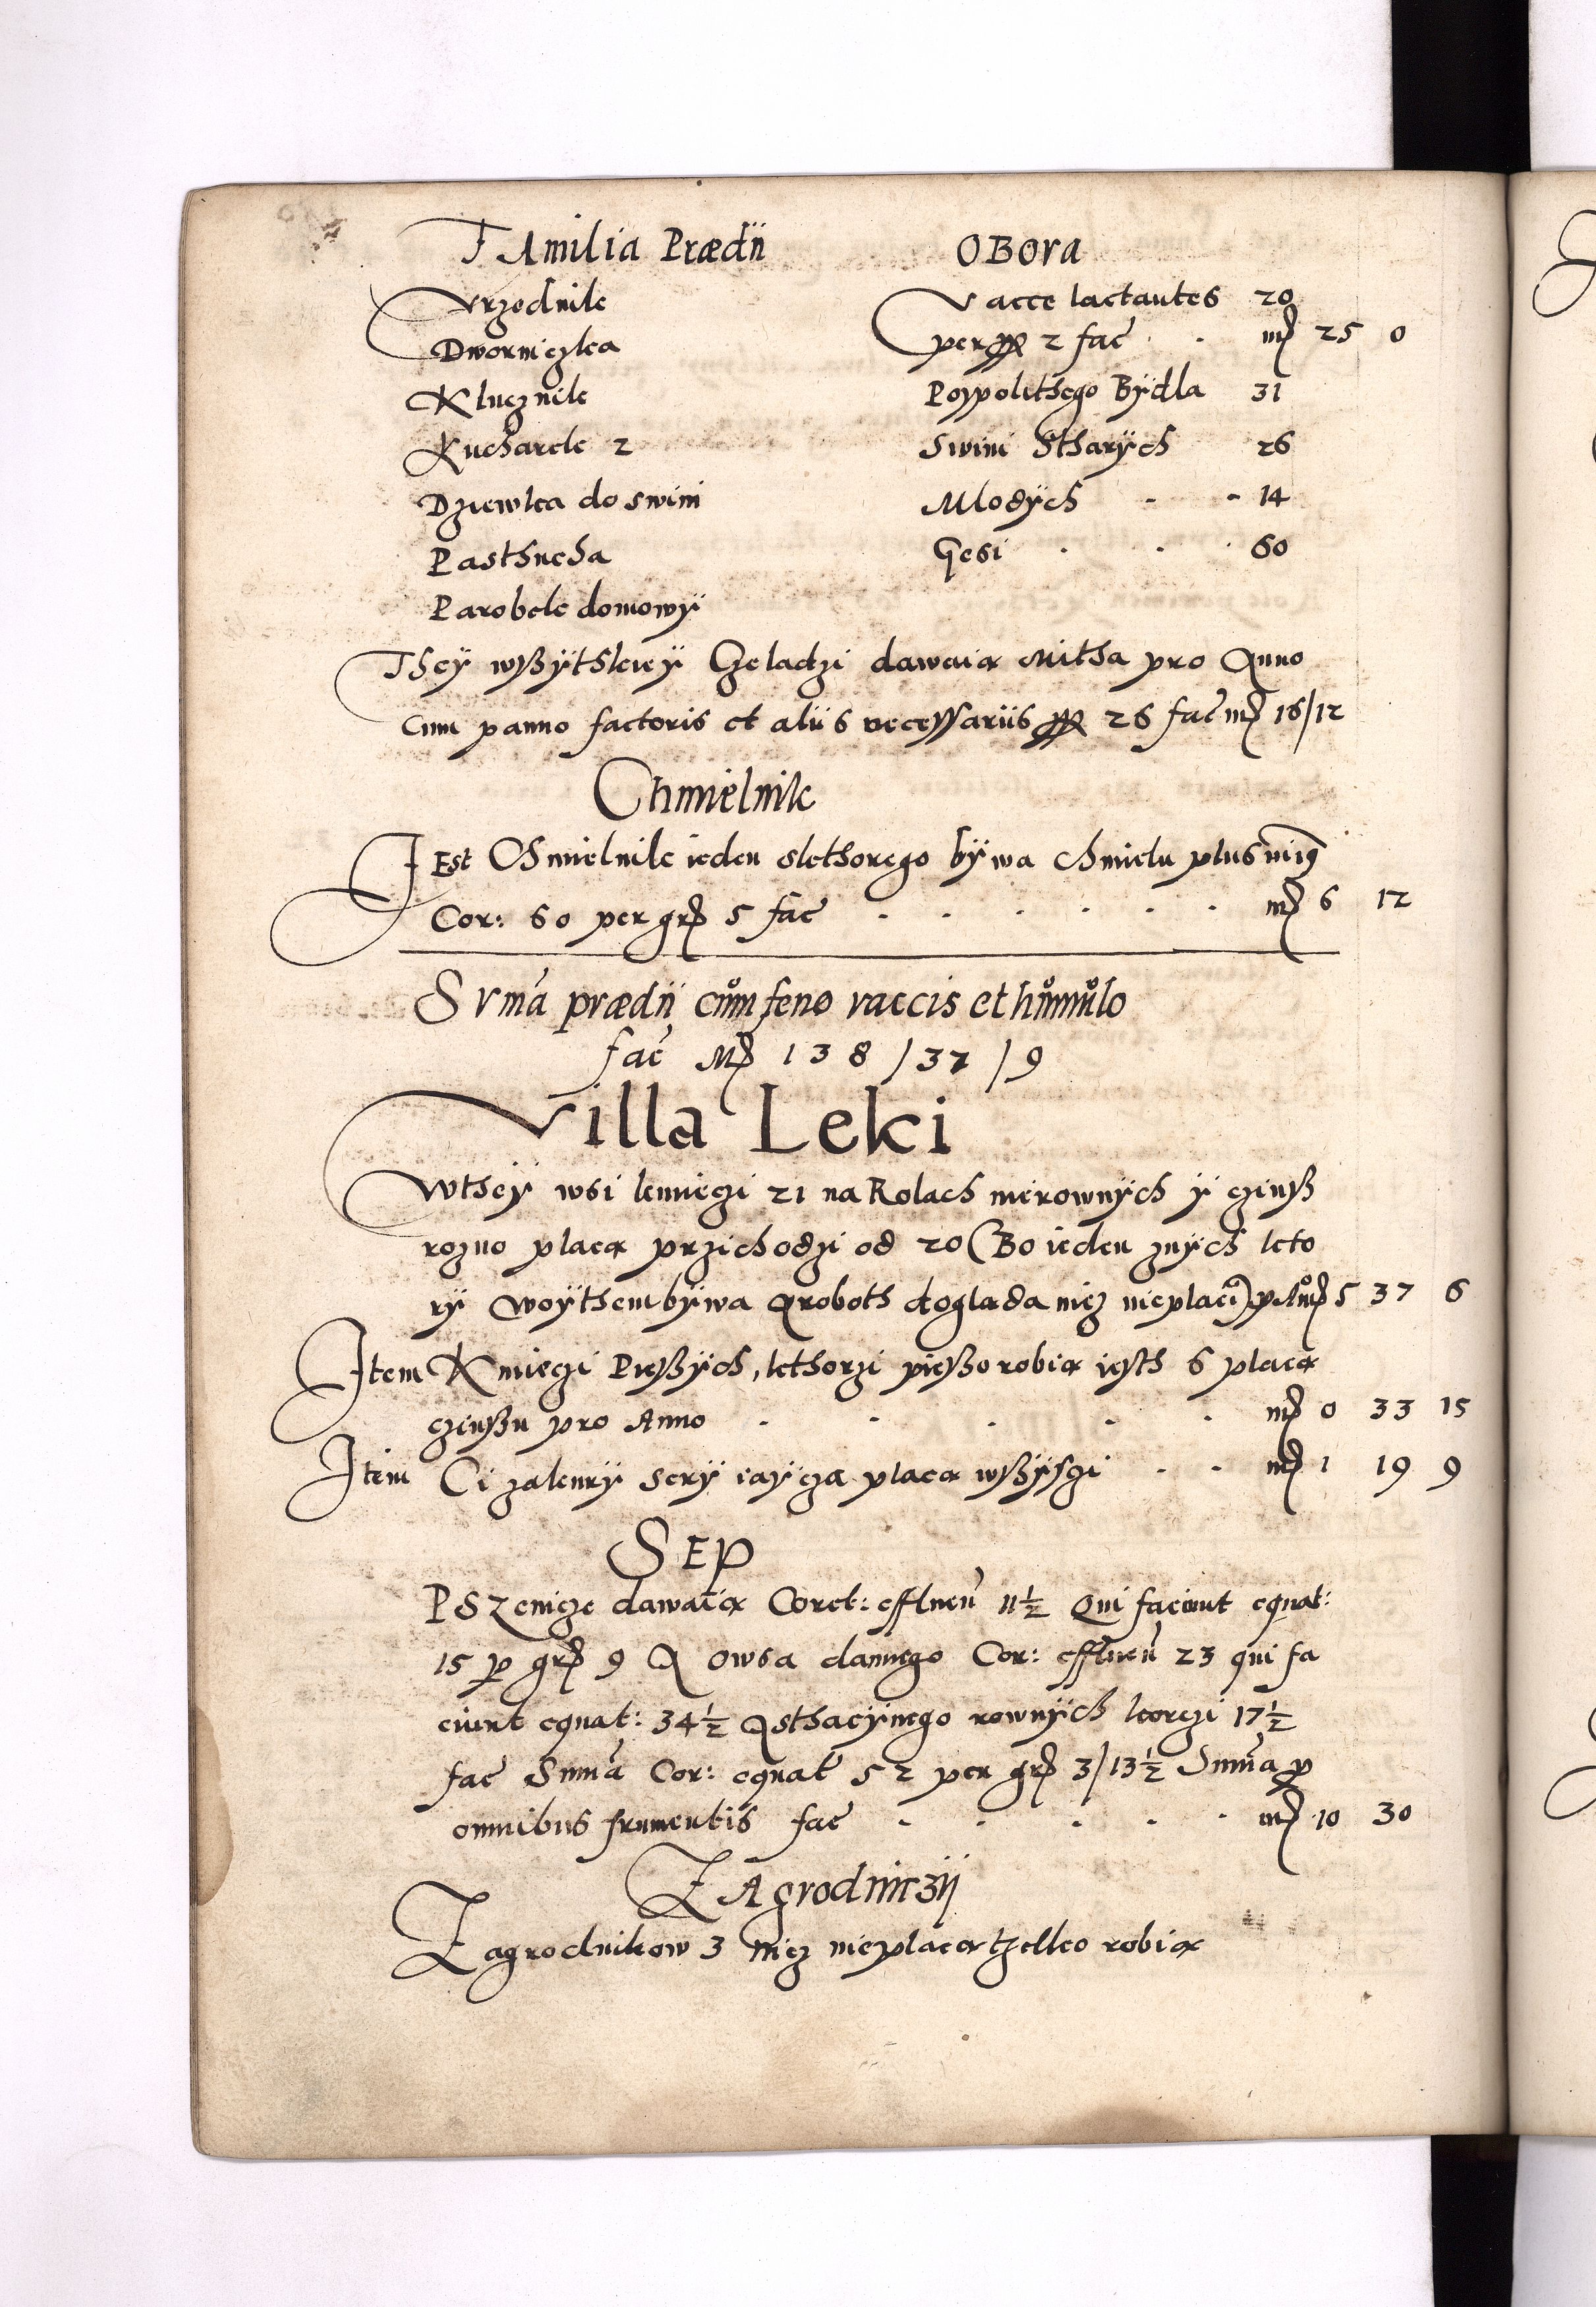 FAmilia Prædij
Vrzednik
Dworniczka
Klucznik
Kucharek 2
Dziewka do swini
Pasthucha
Parobek domowÿ
OBOra
Vacce lactantes 20
per 2 fac mp 25 0
Pospolithego Bÿdla 31
Swini StharÿcH 26
MlodÿcH 14
Gesi 60
Theÿwßÿthkieÿ Czeladzi dawaią Mitha pro Anno
cum panno factoris et aliis necessariis 26 fac mp 16/12
Chmielnik
JEst Chmielnik ieden skthorego bÿwa chmielu plus min9
Cor: 60 per grp 5 fac mp 6 12
SVma prædij cům feno vaccis et hůmůlo
fac Mp 138 / 37 / 9
Villa Leki
Wtheÿ wsi kmieczi 21 na Rolach nierownÿch ÿ czinß
rozno placą przichodzi od 20 (Bo ieden znÿch kto
rÿ Woÿthem bÿwa a roboth doglada nicz nieplaci) mp 5 37 6
Item Kmieczi Pießÿch, kthorzi pießo robią iesth 6 placą
czinßu pro Anno mp 0 33 15
Item Ci zakurÿ serÿ iaÿcza placą wßÿsczi mp 1 19 9
SEP
PSZenicze dawaią Coret: effluen 11½ Qui faciunt equat:
15 p grp 9 A Owsa dannego Cor: effluen 23 qui fa
ciunt equat: 34½ A sthacÿinego rownÿch korczi 17½
fac Suma Cor: equat 52 per grp 3/13½ Suma p
omnibus frumentis fac mp 10 30
ZAgrodniczÿ
Zagrodnikow 3 nicz nieplacą tzelko robią